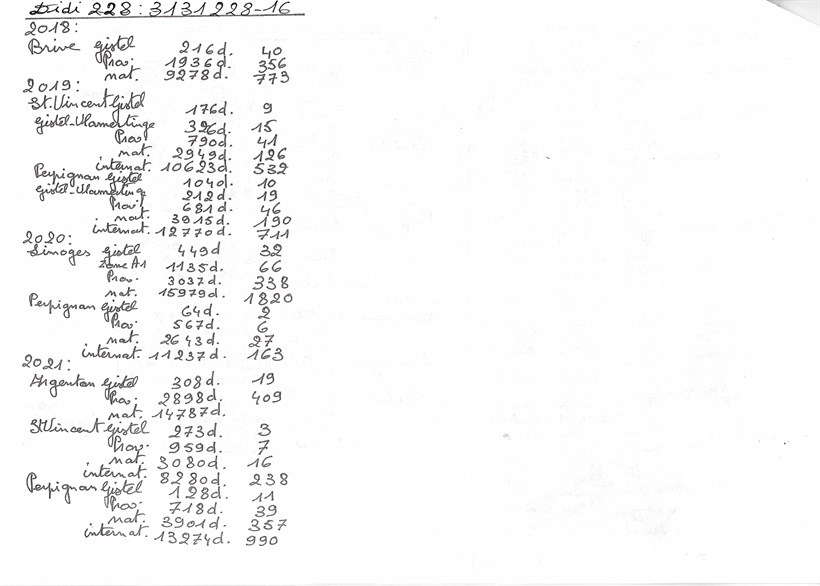 Didi 228: 3131228-16
2018:
Brive gistel 216d. 40
Prov: 1936d. 356
nat. 9278d. 773
2019:
St.Vincent Gistel 176d. 9
gistel-Vlamertinge 326d. 15
Prov! 790d. 41
nat. 2949d. 126
internat. 10623d. 532
Perpignan Gistel 104d. 10
gistel-Vlamertinge 212d. 19
Prov! 681d. 46
nat. 3915d. 190
internat. 12770d. 711
2020:
Limoges gistel 449d 32
Zone A1 1135d. 66
Prov. 3037d. 338
nat. 15979d. 1820
Perpignan Gistel 64d. 2
Prov: 567d. 6
nat. 2643d. 27
internat. 11237d. 163
2021:
Argenton Gistel 308d. 19
Prov: 2898d. 409
nat. 14787d.
St.Vincent Gistel 273d. 3
Prov. 959d. 7
nat. 3080d. 16
internat. 8280d. 238
Perpignan Gistel 128d. 11
Prov: 718d. 39
nat. 3901d. 357
internat. 13274d. 990